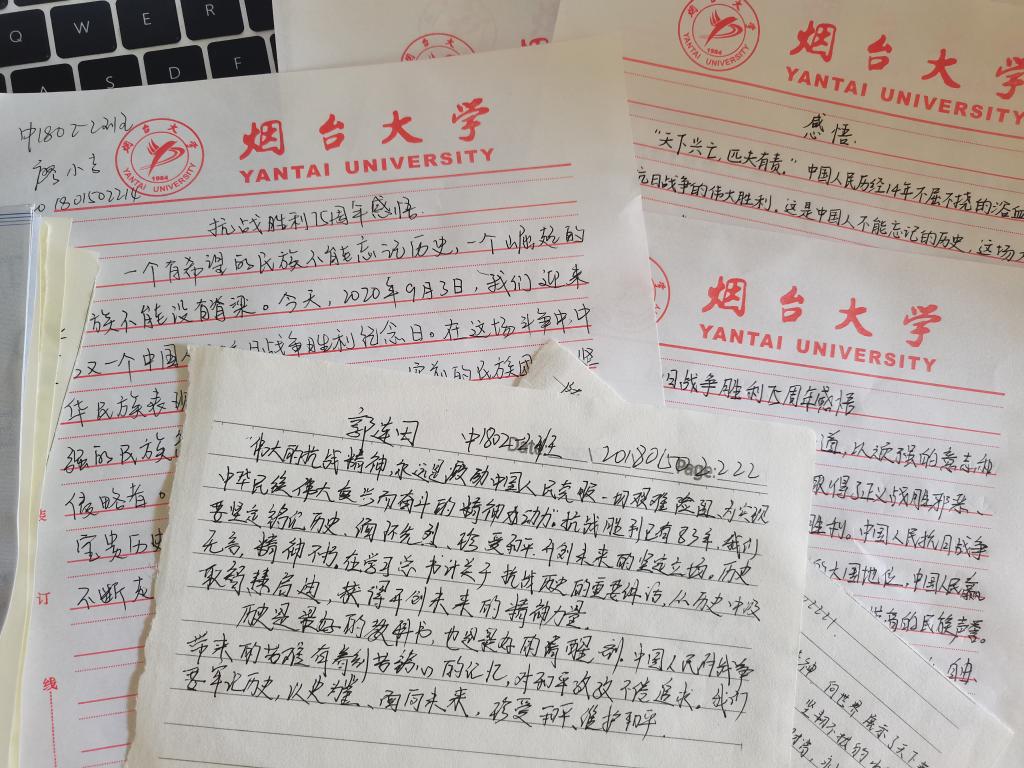 Q W E R
A S D F
中1802-2班
廖小
1801502214
烟台大学
YANTAI UNIVERSITY
抗战胜利75周年感悟
一个有希望的民族不能忘记历史,一个崛起的
族不能没有脊梁。今天,2020年9月3日,我们迎来
又一个中国人 日战争胜利纪念日。在这场斗争中,中
华民族表现 的民族团 坚
强的民族
侵略者。
宝贵历史
不断
装
订
线
烟台大学
YANTAI UNIVERSITY
感悟
“天下兴亡,匹夫有责。”中国人民历经14年不屈不挠的浴血
抗日战争的伟大胜利。这是中国人不能忘记的历史,这场
烟台大学
YANTAI UNIVERSITY
战争胜利75周年感悟
道,以顽强的意志和
取得了正义战胜邪恶、
胜利。中国人民抗日战争
的大国地位,中国人民赢
崇高的民族声誉。
向世界展示了天下
坚韧不拔的
郭连田 中1802 班 2018015 222
Date Page
伟大的抗战精神,永远是激励中国人民克服一切艰难险阻、为实现
中华民族伟大复兴而奋斗的精神动力。抗战胜利已有 年,我们
要坚定铭记历史、缅怀先烈、珍爱和平、开创未来的坚定立场。历史
无言,精神不朽。在学习 书记关于抗战历史的重要 话,从历史中汲
取 启迪,获得开创未来的精神力量。
历史是最好的教科书,也是最好的清醒剂。中国人民 战争
带来的苦难有着刻骨铭心的记忆,对和平孜孜不倦追求。我们
要牢记历史,以史为 、面向未来,珍爱和平,维护和平。